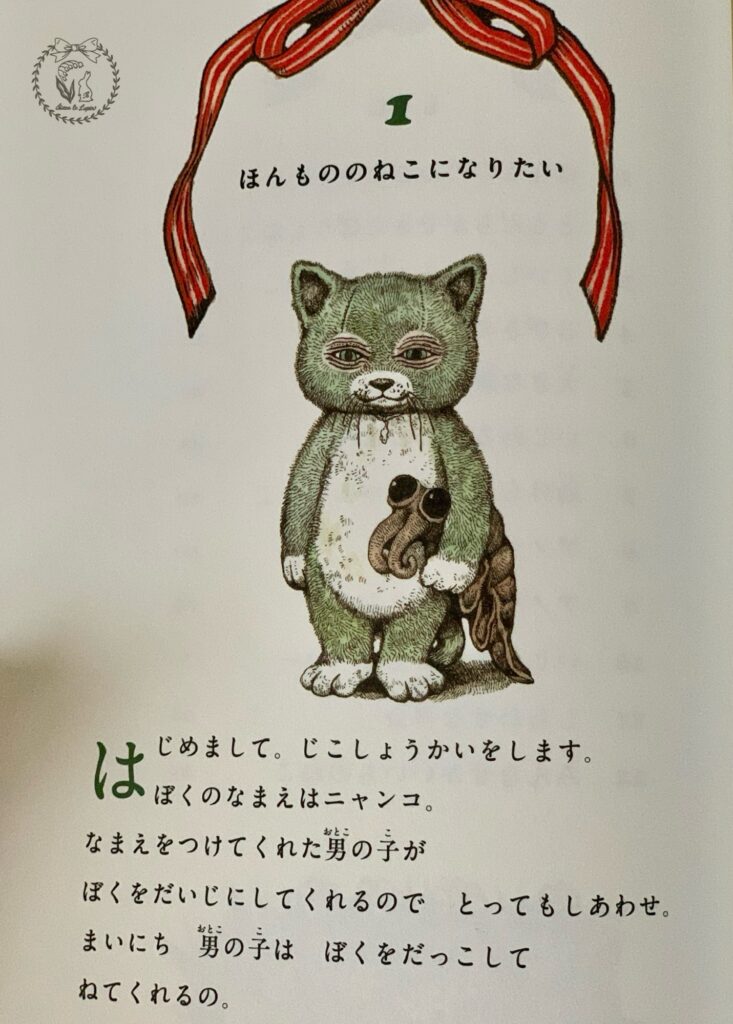 1
ほんもののねこになりたい
はじめまして。じこしょうかいをします。
ぼくのなまえはニャンコ。
なまえをつけてくれた男の子が
ぼくをだいじにしてくれるので　とってもしあわせ。
まいにち　男の子は　ぼくをだっこして
ねてくれるの。